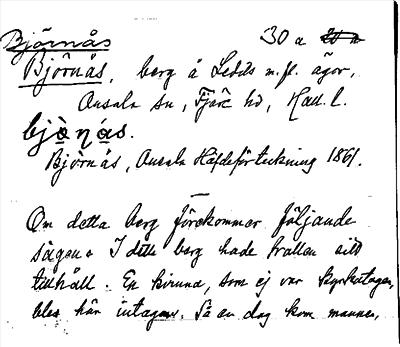 Björnås 30 a 20 a
Björnås, berg å Ledds m.fl. ägor,
Onsala sn, Fjäre hd, Hall. l.
bjo̱ṇás.
Björnås, Onsala Häfdeförteckning 1861.
Om detta berg förekommer följande
sägen. I detta berg hade trollen sitt
tillhåll. En kvinna, som ej var kyrktagen,
blev här intagen. Så en dag kom mannen,